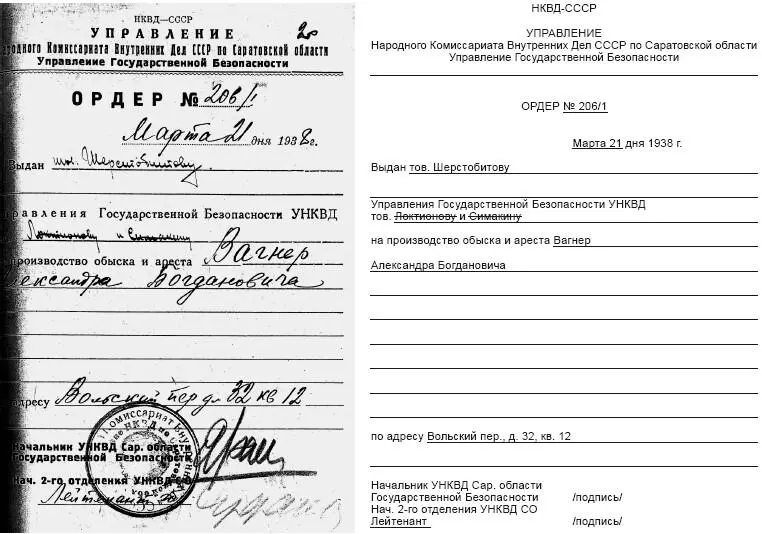 НКВД—СССР
УПРАВЛЕНИЕ
ародного Комиссариата Внутренних Дел СССР по Саратовской области
Управление Государственной Безопасности
ОРДЕР № 206/1
Марта 21 дня 1938 г.
Выдан тов. Шерстобитову
правления Государственной Безопасности УНКВД
Локтионову и Симакину
производство обыска и ареста Вагнер
лександра Богдановича
адресу Вольский пер д 32 кв 12
Комиссариат Внут
НКВД по
Начальник УНКВД Сар. области
Государственной Безопасности
Нач. 2-го отделения УНКВД СО
Лейтенант
НКВД-СССР
УПРАВЛЕНИЕ
Народного Комиссариата Внутренних Дел СССР по Саратовской области
Управление Государственной Безопасности
ОРДЕР № 206/1
Марта 21 дня 1938 г.
Выдан тов. Шерстобитову
Управления Государственной Безопасности УНКВД
тов. Локтионову и Симакину
на производство обыска и ареста Вагнер
Александра Богдановича
по адресу Вольский пер., д. 32, кв. 12
Начальник УНКВД Сар. области
Государственной Безопасности /подпись/
Нач. 2-го отделения УНКВД СО
Лейтенант /подпись/